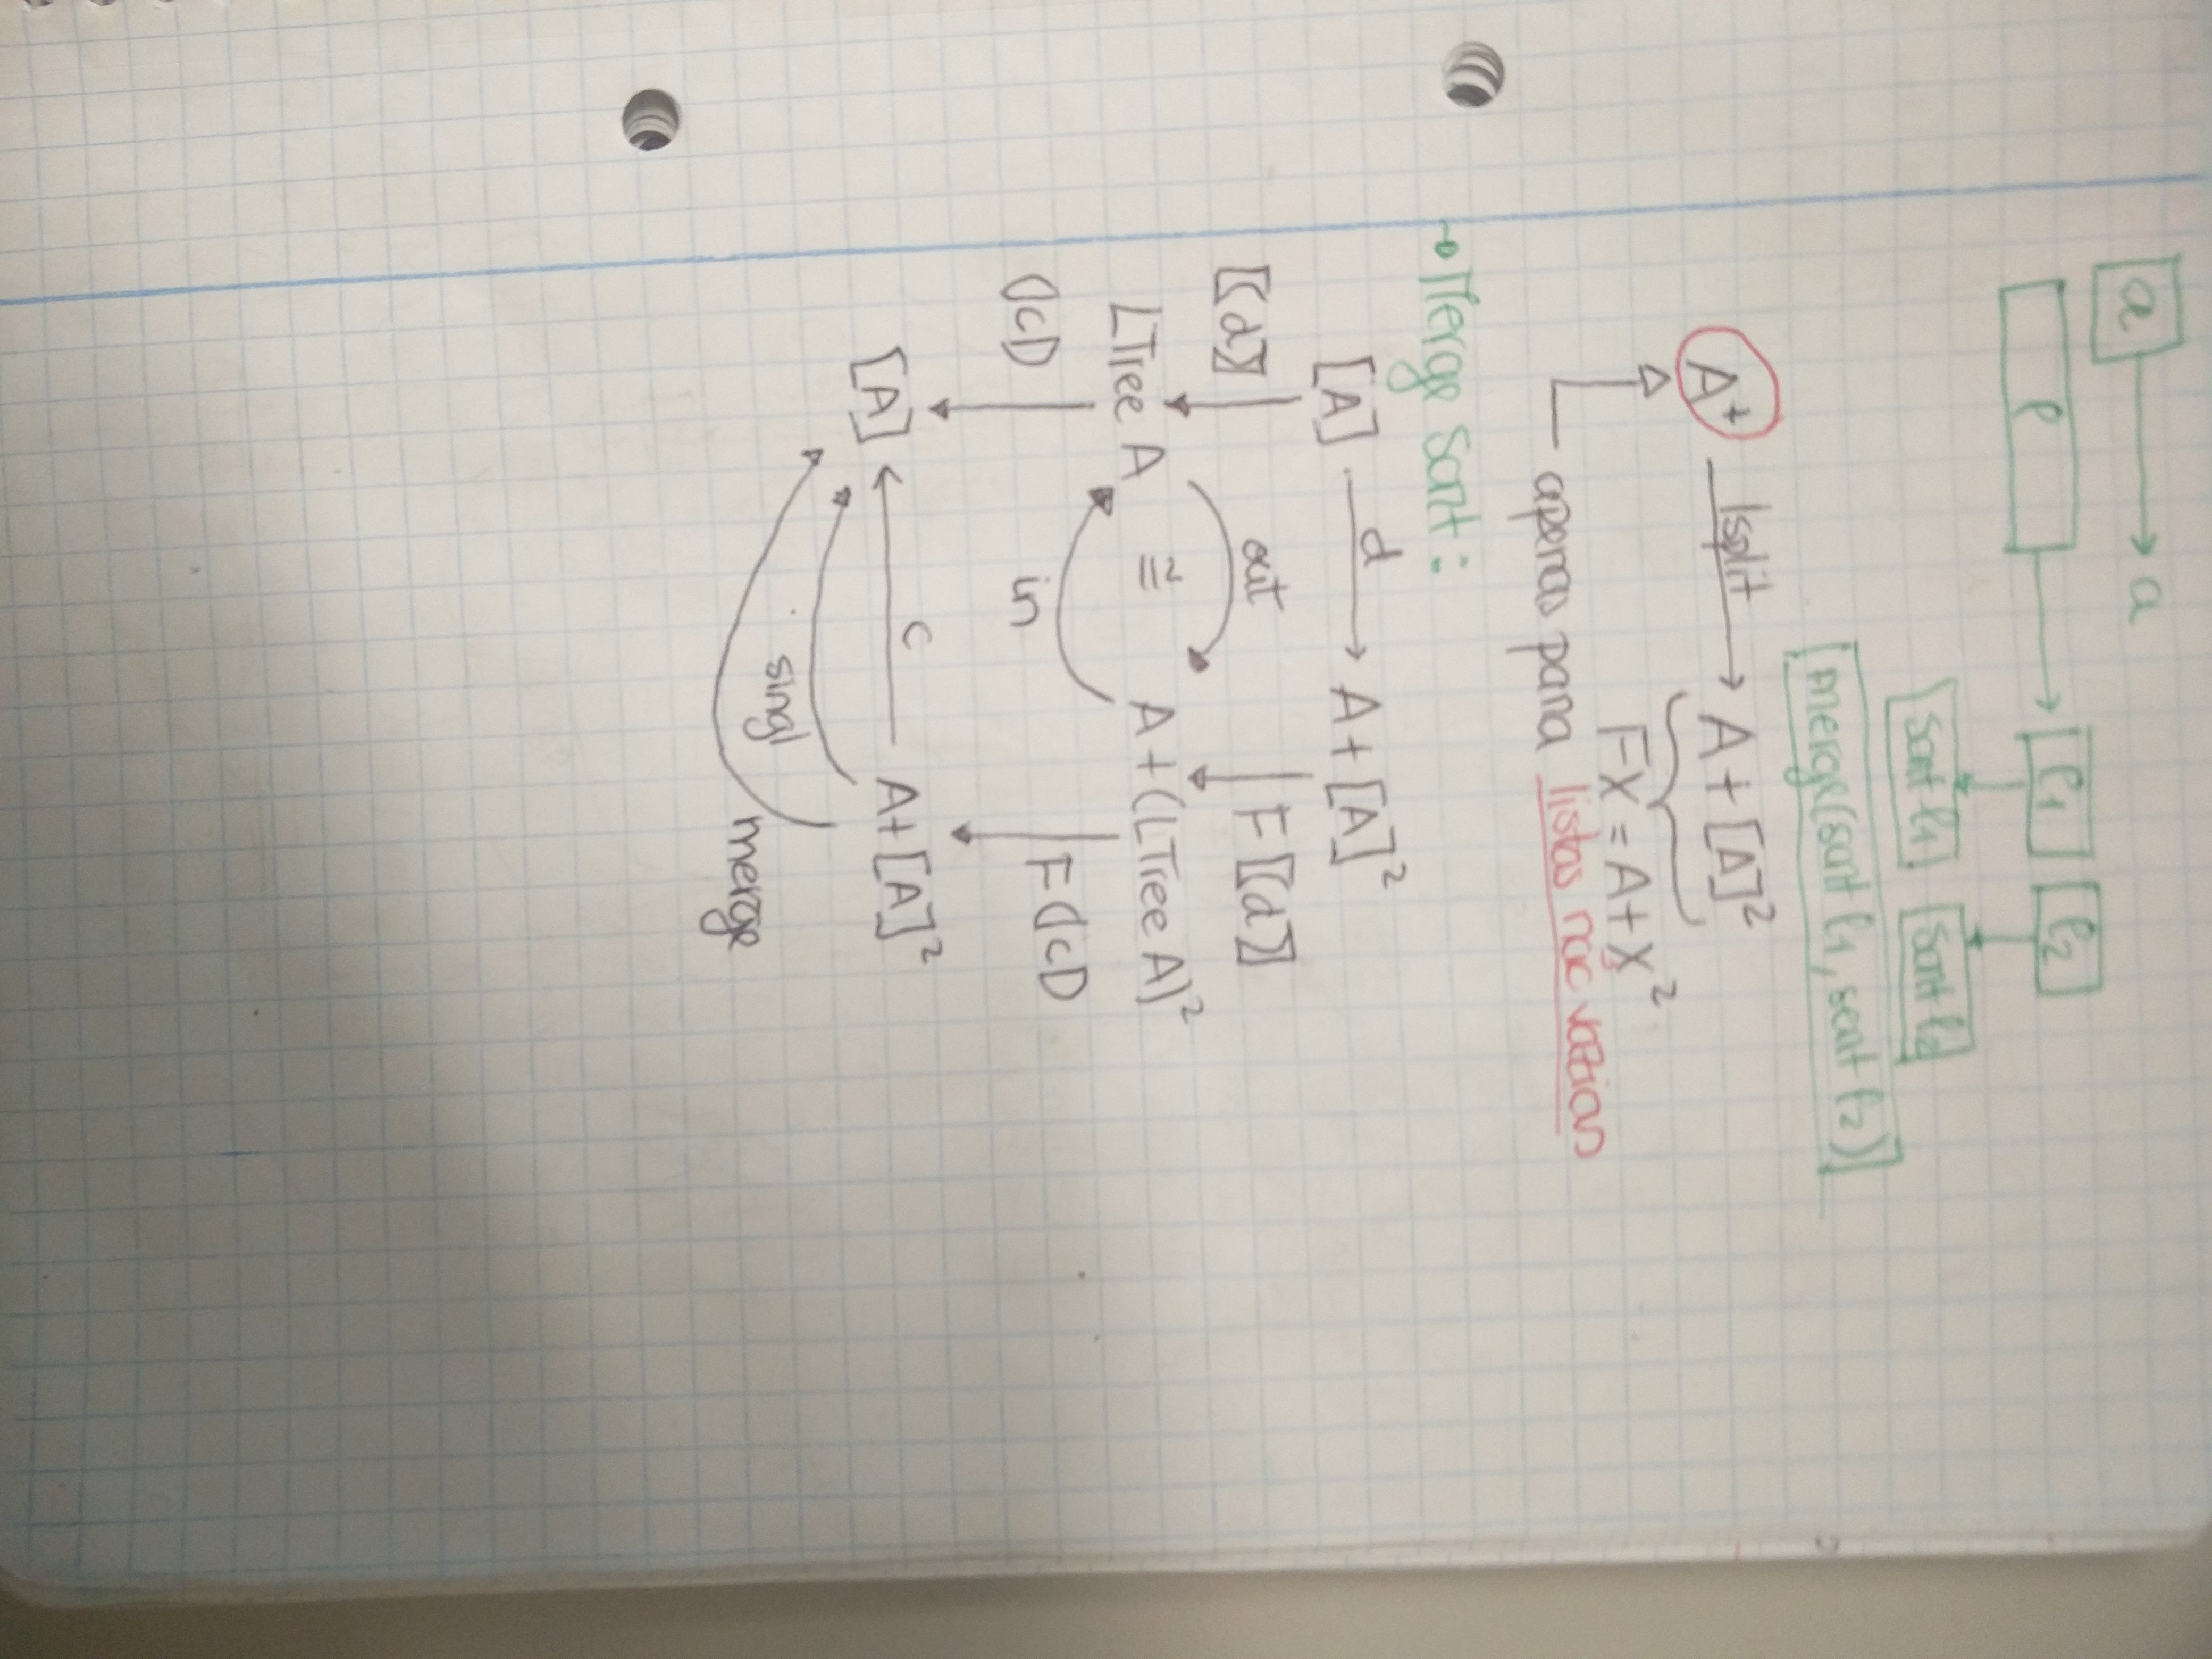 a → a
l → l₁ l₂
sort l₁ sort l₂
merge(sort l₁, sort l₂)
A⁺ lsplit → A + [A]²
FX = A + X²
apenas para listas não vazias
→ Merge Sort:
[A] d → A + [A]²
〖(d)〗 out F 〖(d)〗
LTree A ≅ A + (LTree A)²
⦇c⦈ in F⦇c⦈
[A] ← c A + [A]²
singl
merge